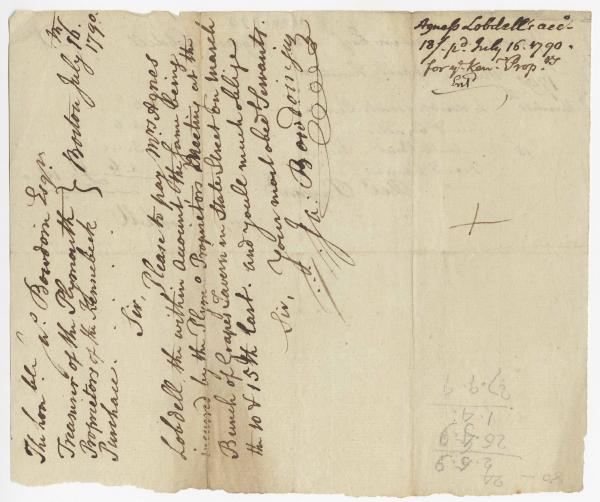 The hon.ble Ja.s Bowdoin Esq.r
Treasurer of the Plymouth } Boston July 16.th
Proprietors of the Kennebeck 1790.
Purchace
Sir, Please to pay Mrs Agnes
Lobdell, the within Account the same being
incurred by the Plym.o Proprietors Meeting at the
Bunch of Grapes Tavern in State Street on March
the 10 & 15th last. and you'll much oblige
Sir, Your most obed.t Servants.
Ja: Bowdoin jun
Agness Lobdell's acco.t
18/. p.d July 16. 1790.
for y.e Ken.k Prop.rs
Ent.d
37.9.9
1.4.
26.5.9
2.8.9
24
80